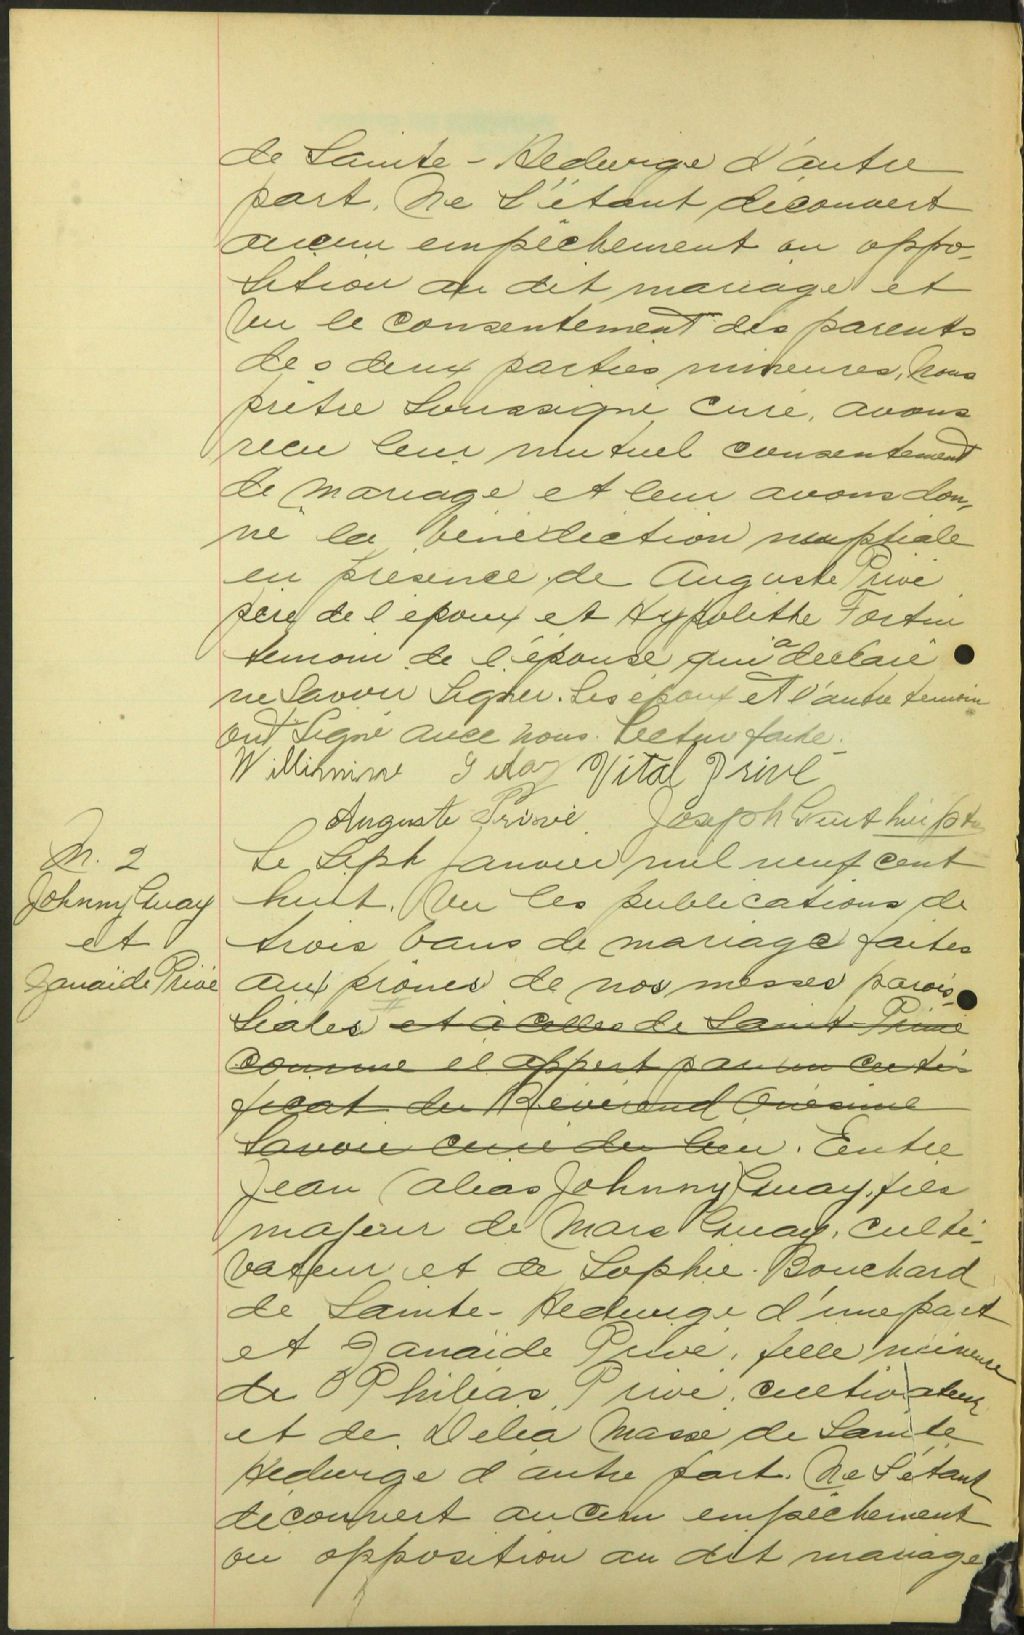 de Sainte-Hedwige d'autre
part. Ne s'étant découvert
aucun empêchement ou oppo-
sition au dit mariage et
Vu le consentement des parents
des deux parties mineures, Nous
prêtre soussigné curé, avons
recu leur mutuel consentement
de mariage et leur avons don-
né la bénédiction nuptiale
en présence de Auguste Privé
père de l'époux et Hypolithe Fortin
temoin de l'épouse qui a déclaré
ne savoir signer. Les époux et l'autre temoin
ont signé avec nous. Lecture faite.
Vital Privé
Auguste Privé Joseph
M. 2
Johnny Guay
et
Zanaïde Privé
Le sept Janvier mil neuf cent
huit. Vu les publications de
trois bans de mariage faites
aux prônes de nos messes parois-
siales et à celles de Saint Prime
comme il appert par un certi-
ficat du Révérend Onésime
Lavoie curé du lieu. Entre
Jean (alias Johnny) Guay, fils
majeur de Mars Guay, culti-
vateur et de Sophie Bouchard
de Sainte-Hedwige d'une part
et Zanaïde Privé, fille mineure
de Philias Privé, cultivateur
et de Délia Massé de Sainte
Hedwige d'autre part. Ne s'étant
découvert aucun empêchement
ou opposition au dit mariage